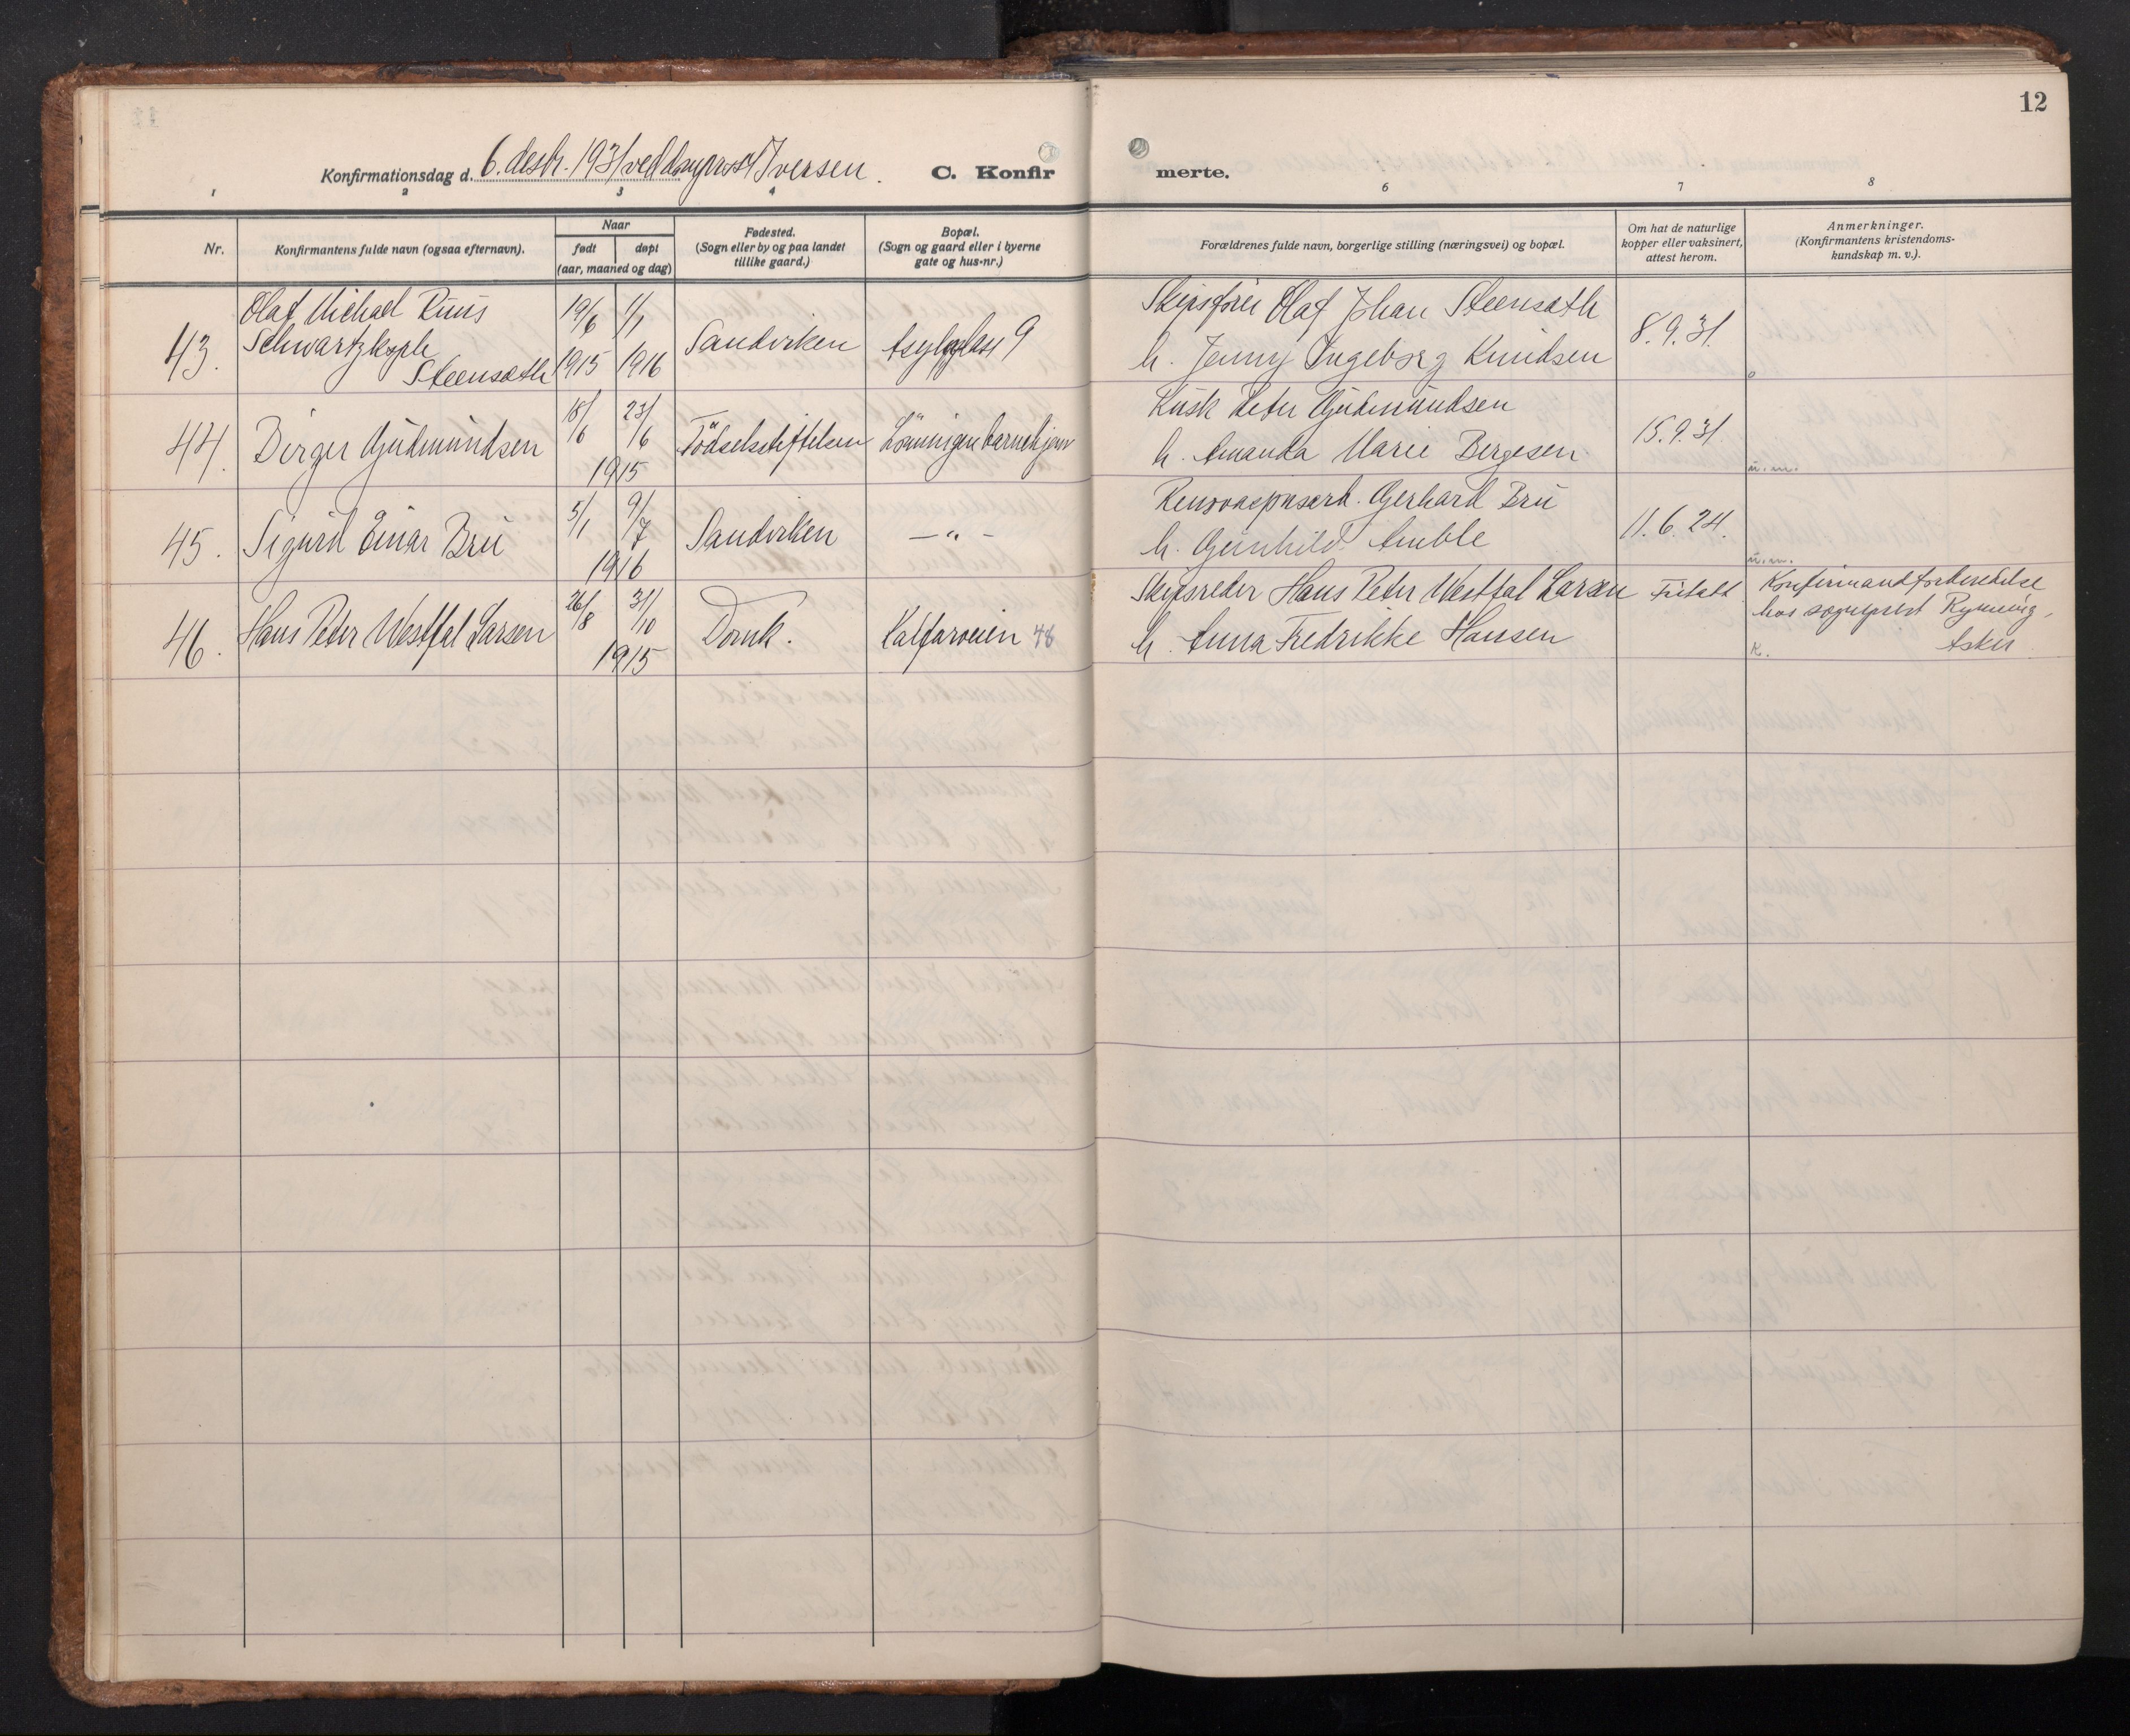 12
Konfirmationsdag d. 6. desbr. 1931 ved Iversen. C. Konfir merte.
1 2 3 4 6 7 8
Nr.
Konfirmantens fulde navn (ogsaa efternavn).
Naar
født døpt
(aar, maaned og dag)
Fødested.
(Sogn eller by og paa landet
tillike gaard.)
Bopæl.
(Sogn og gaard eller i byerne
gate og hus-nr.)
Forældrenes fulde navn, borgerlige stilling (næringsvei) og bopæl.
Om hat de naturlige
kopper eller vaksinert,
attest herom.
Anmerkninger.
(Konfirmantens kristendoms-
kundskap m. v.).
Olaf Michael Ruus 19/6 1/1 Skipsfører Olaf Johan Steensæth
43. Schwartzkoph Sandviken Asylplass 9 8.9.31.
Steensæth 1915 1916 h. Jenny Ingeborg Knudsen
18/6 23/6 Kusk Peter Gudmundsen
44. Birger Gudmundsen Födselsstiftelsen Lönningen barnehjem 15.9.31.
1915 h. Amanda Marie Bergesen
u.m.
5/1 9/7 Gerhard Bru
45. Sigurd Einar Bru Sandviken — " — 11.6.24.
1916 h. Gunhild Amble
u.m.
26/8 31/10 Skipsreder Hans Peter Westfal Larsen Fritatt Konfirmandforberedelse
46. Hans Peter Westfal Larsen Domk. Kalfarveien 48 hos sogneprest Rynning,
1915 h. Anna Fredrikke Hansen K. Asker